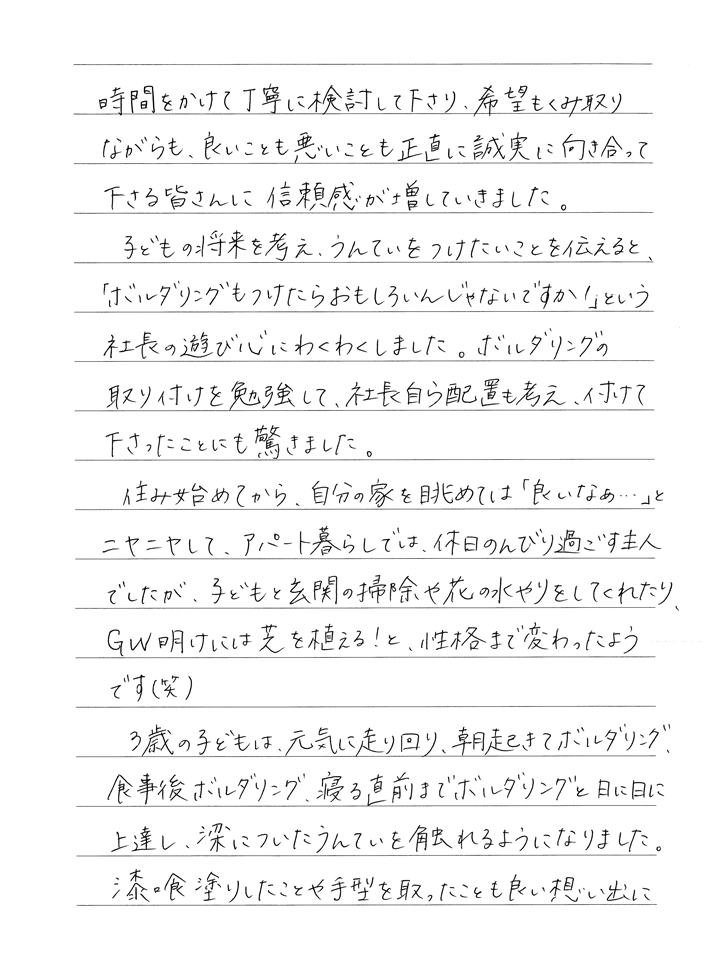 時間をかけて丁寧に検討して下さり、希望もくみ取り
ながらも、良いことも悪いことも正直に誠実に向き合って
下さる皆さんに信頼感が増していきました。
子どもの将来を考え、うんていをつけたいことを伝えると、
「ボルダリングもつけたらおもしろいんじゃないですか!」という
社長の遊び心にわくわくしました。ボルダリングの
取り付けを勉強して、社長自ら配置も考え、付けて
下さったことにも驚きました。
住み始めてから、自分の家を眺めては「良いなぁ…」と
ニヤニヤして、アパート暮らしでは、休日のんびり過ごす主人
でしたが、子どもと玄関の掃除や花の水やりをしてくれたり、
GW明けには芝を植える!と、性格まで変わったよう
です(笑)
3歳の子どもは、元気に走り回り、朝起きてボルダリング、
食事後ボルダリング、寝る直前までボルダリングと日に日に
上達し、梁についたうんていを触れるようになりました。
漆喰塗りしたことや手型を取ったことも良い想い出に